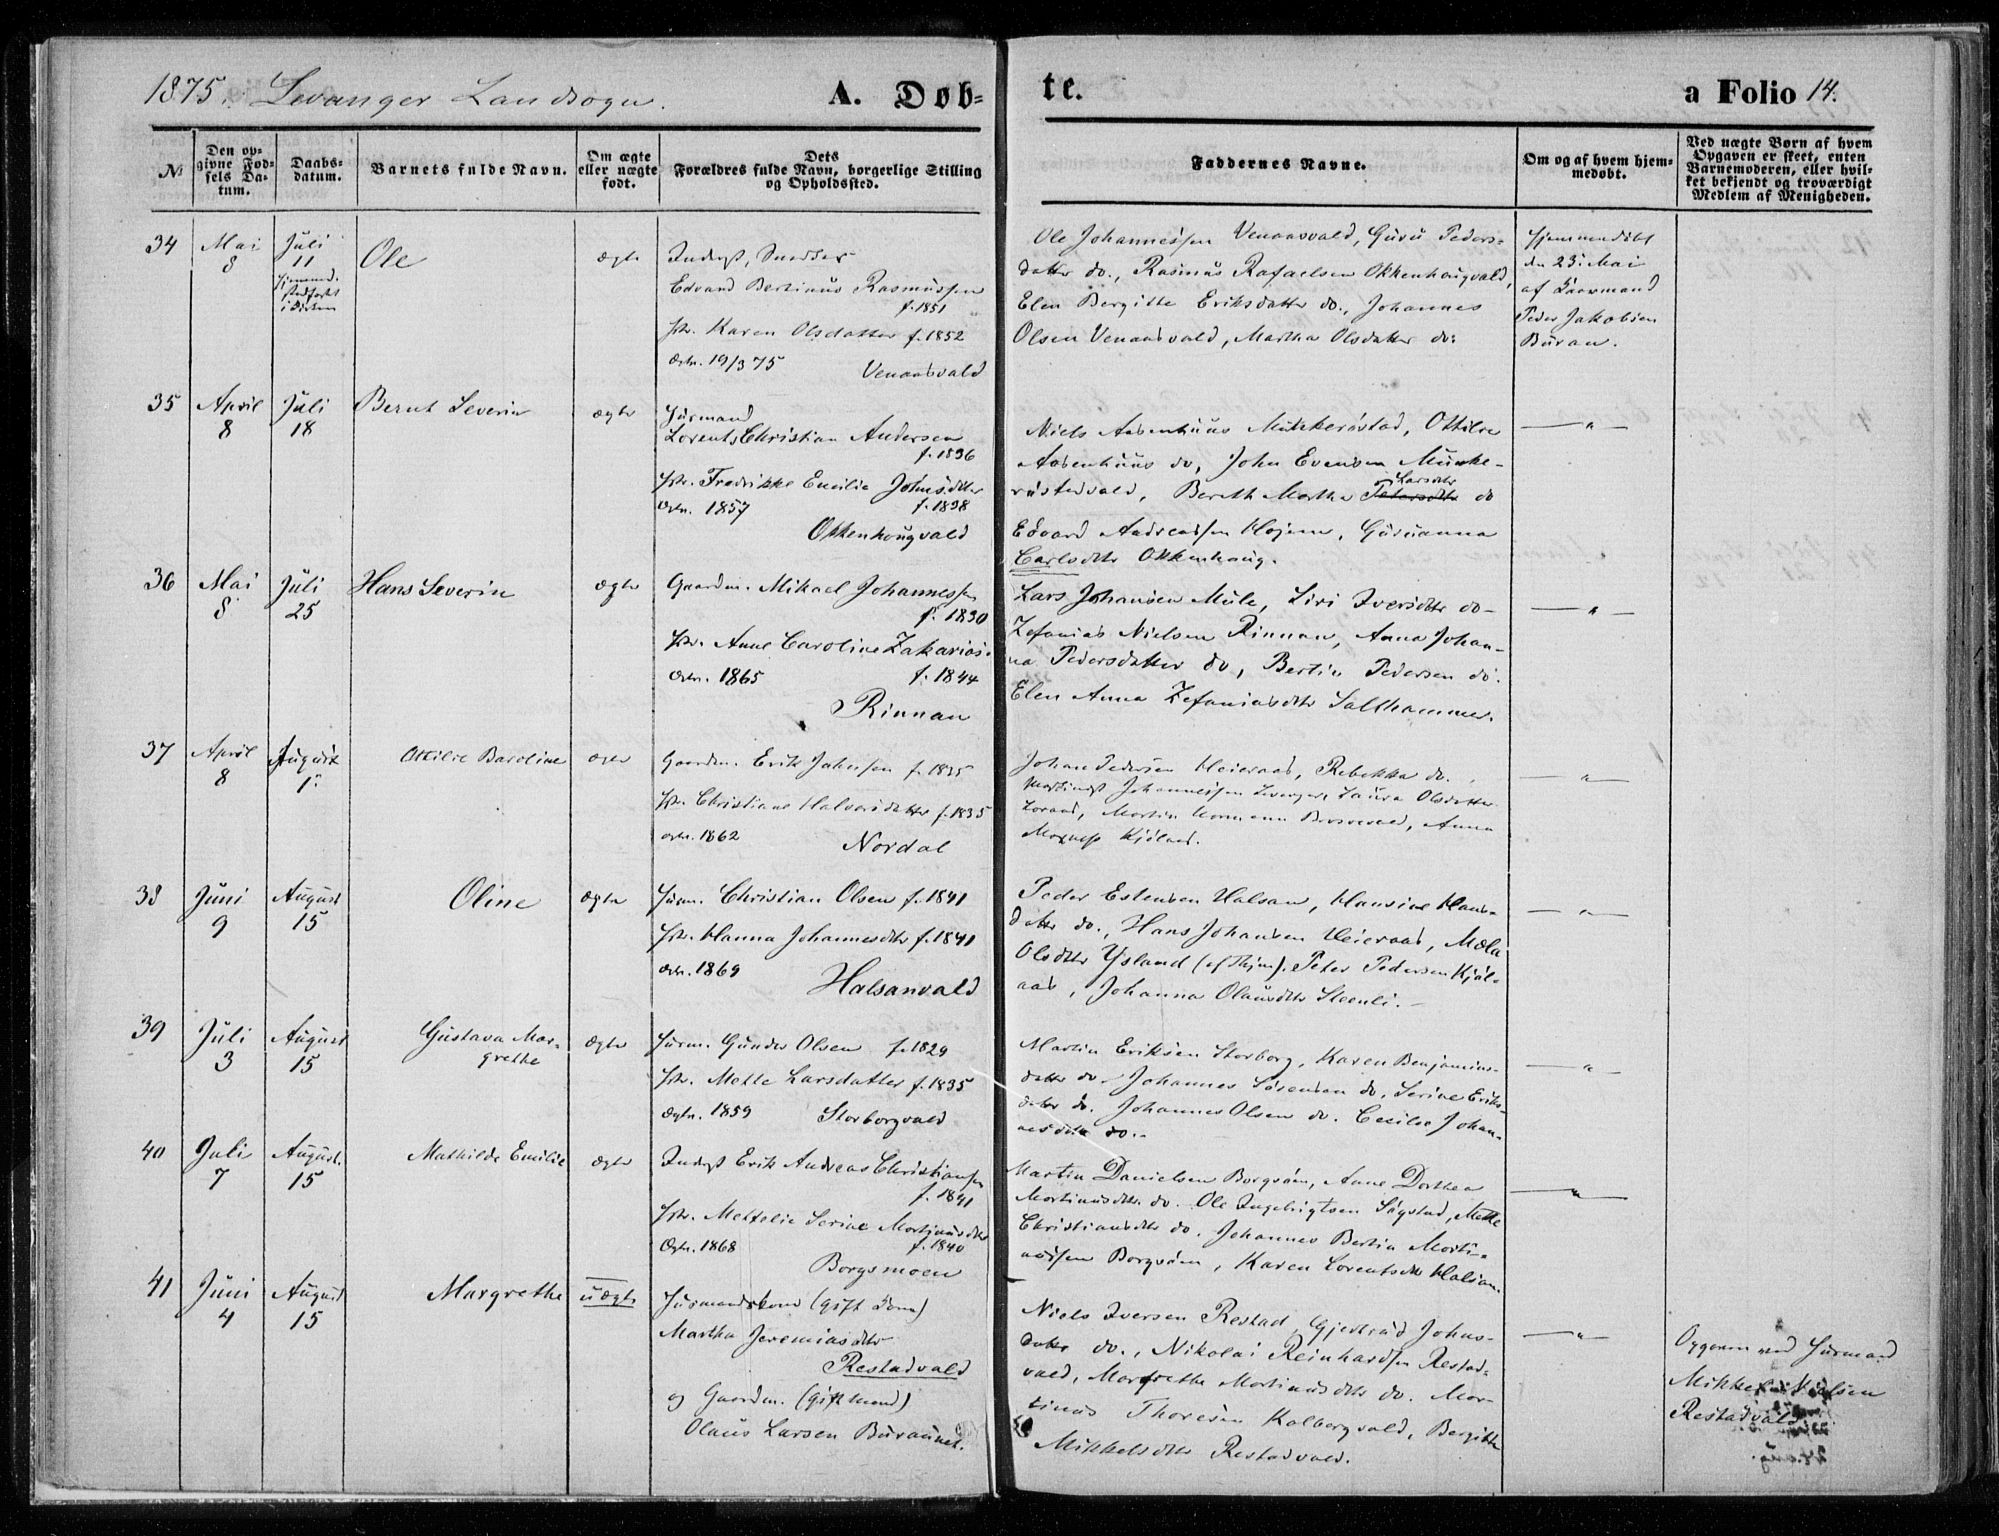 1875. Levanger Landsogn.
A. Døb-
te.
a Folio 14.
№
Den op-
givne Fød-
sels Da-
tum.
Daabs-
datum.
Barnets fulde Navn.
Om ægte
eller uægte
født.
Dets
Forældres fulde Navn, borgerlige Stilling
og Opholdssted.
Faddernes Navne.
Om og af hvem hjem-
medøbt.
Ved uægte Børn af hvem
Opgaven er skeet, enten
Barnemoderen, eller hvil-
ket bekjendt og troværdigt
Medlem af Menigheden.
34
Mai
8
Juli
11
i Kirken
Ole
ægte
Inderst, Snedker
Edvard Bertinus Rasmussen
f. 1851
Karen Olsdatter f. 1852
19/3 75
Venaasvald
Ole Johannessen Venaasvald, Guru Peders-
datter do., Rasmus Rafaelsen Okkenhaugvald,
Elen Bergitte Eriksdatter do., Johannes
Olsen Venaasvald, Martha Olsdatter do.
Hjemmedøbt
den 23. Mai
af Gaardmand
Peder Jakobsen
Buran.
35
April
8
Juli
18
Bernt Severin
ægte
Husmand
Lorents Christian Andersen
f. 1836
Fredrikke Emilie Johnsdtter
1857
f. 1838
Okkenhougvald
Niels Aasenhuus Munkerøstad, Ottilie
Aasenhuus do, John Evensen Munke-
røstadvald, Bereth Martha Petersdtter Larsdtter do
Edvard Andreassen Højem, Guruanna
Carlsdtr Okkenhaug.
36
Mai
8
Juli
25
Hans Severin
ægte
Gaardm. Mikael Johannessen
f. 1830
Anne Caroline Zakarias-
1865
f. 1844
Rinnan
Lars Johansen Mule, Siri Iversdtter do-
Zefanias Nielsen Rinnan, Anna Johan-
na Pedersdatter do, Bertin Pedersen do.
Elen Anna Zefaniasdtr Salthammer.
37
April
8
August
1.
Ottilie Baroline
ægte
Gaardm. Erik Johnsen f. 1835
Christiane Halvorsdatter f. 1835
1862
Nordal
Johan Pedersen Heieraas, Rebekka do.
Johannessen Levanger, Laura Olsdatter
Martin, Anna
Kjølaas.
38
Juni
9
August
15
Oline
ægte
Husm. Christian Olsen f. 1841
Hanna Johannesdtr f. 1841
1869
Halsanvald
Peder Estensen Halsan, Hansine Hans-
datter do., Hans Johansen Heieraas, Mæla
Olsdtr Ysland, Peter Pedersen Kjøl-
aas, Johanna Olausdtr Steenli.
39
Juli
3
August
15
Gustava Mar-
grethe
ægte
Husm. Gunder Olsen f. 1829
Mette Larsdatter f. 1835
1859
Storborgvald
Martin Eriksen Storborg, Karen Benjamins-
datter do- Johannes Sørensen do, Serine Eriks-
datter do. Johannes Olsen do. Cecilie Johan-
nesdtr do.
40
Juli
7
August.
15
Mathilde Emilie
ægte
Inderst Erik Andreas Christiansen
f. 1841
Metfelie Serine Martinusdtr
1868
f. 1840
Borgsmoen
Martin Danielsen Borgsøm, Anne Dorthea
Mortinusdtr do. Ole Ingebrigtsen Sagstad, Mette
Christiansdtr do. Johannes Bertin Morti-
nussen Borgsøm, Karen Lorentsdtr Halsan.
41
Juni
4
August
15
Margrethe
uægte
Husmandskone (gift Kone)
Martha Jeremiasdtr
Restadvald
og Gaardm. (gift Mand)
Olaus Larsen Buraunet.
Niels Iversen Restad, Gjertrud Johns-
datter do., Nikolai Reinhardsen Restad-
vald, Margrethe Mortinusdtr do. Mor-
tinus Thoresen Kolbergvald, Bergitte
Mikkelsdtr Restadvald.
Opgaven ved Husmand
Mikkel Nielsen
Restadvald